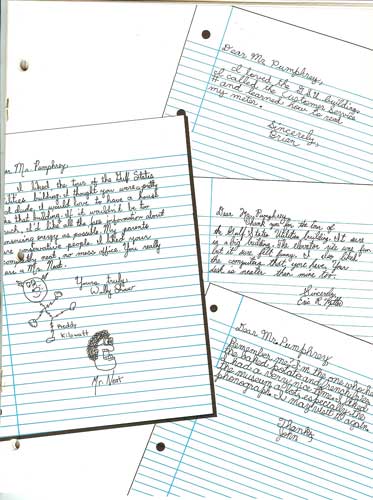 Dear Mr. Pumphrey,
I toured the GSU building.
I called the Customer Service
# and learned how to read
my meter.
Sincerely,
Brian
Mr. Pumphrey,
I liked the tour of the Gulf States
Utilities building. I thought you were pretty
dude. I would love to have a house
that building. If it wouldn't be too
much, I'd like all the free information about
conserving energy as possible. My parents
are conservative people. I liked your
neat, no mess office. You really
are a Mr. Neat.
Yours truly,
Willy
Reddy
Kilowatt
Mr. Neat
Dear Mr. Pumphrey,
Thank you for the tour of
the Gulf States Utilities building. It sure
is a big building. The elevator ride was fun
but it sure felt funny. I also liked
the computers that you have. Your
desk is neater than mine too!
Sincerely,
Eric R.
Dear Mr. Pumphrey
Remember me? I'm the one who had
the baked potato and french fries.
I had a very nice time. I liked
the museum a lot, especially the
phonograph. I may visit it again.
Thanks,
John